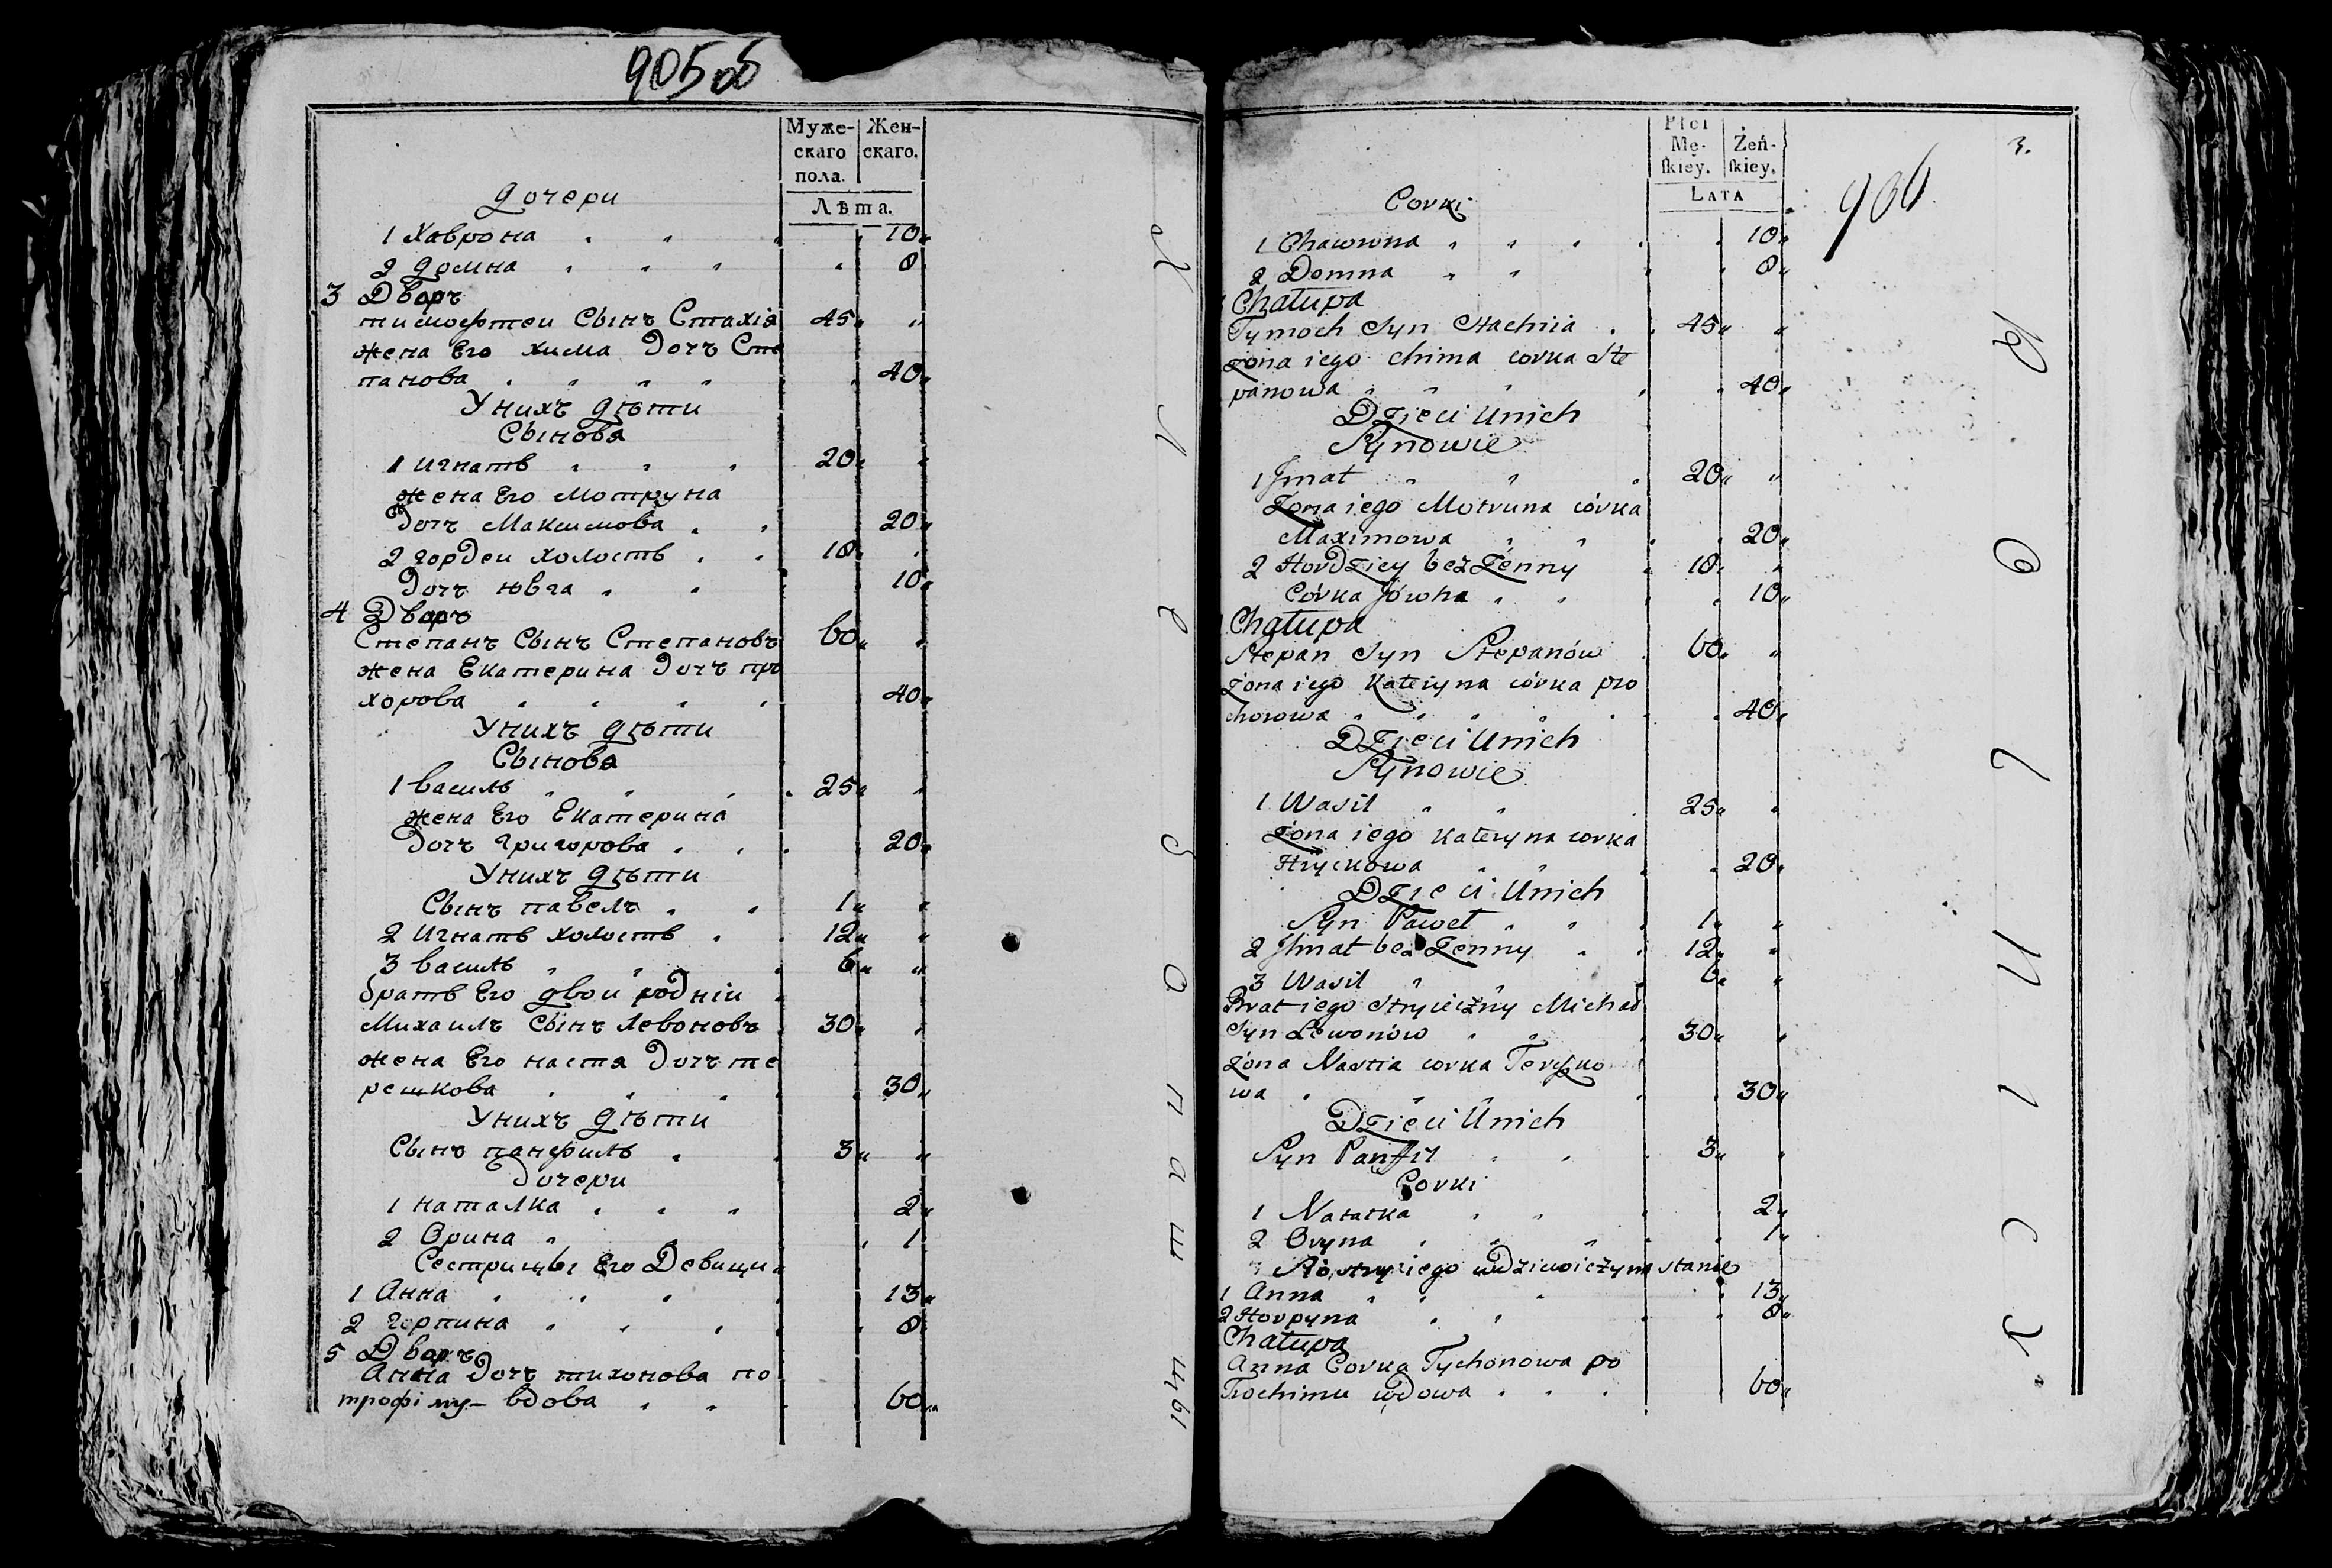 905 об
Муже-
скаго
пола.
Жен-
скаго.
Лѣта.
Дочери
1 Хаврона 10
2 Домна 8
3 Дворъ
тимофтеи Сынъ Стахія 45
жена Его хима Дочъ Сте
панова 40
Унихъ дѣти
Сынова
1 игнать 20
жена Его мотруна
Дочъ Максимова 20
2 гордеи холость 18
Дочъ ювга 10
4 Дворъ
Степанъ Сынъ Степановъ 60
жена Екатерина Дочъ про
хорова 40
Унихъ дѣти
Сынова
1 василь 25
жена Его Екатерина
Дочъ григорова 20
Унихъ дѣти
Сынъ павелъ 1
2 Игнать холость 12
3 василь 6
братъ Его двои родніи
Михаилъ Сынъ Левоновъ 30
жена Его настя Дочъ те
решкова 30
Унихъ дѣти
Сынъ панфиль 3
Дочери
1 наталка 2
2 Орина 1
Сестрицы Его Девици
1 Анна 13
2 горпина 8
5 Дворъ
Анна Дочъ тихонова по
трофіму вдова 60
Х л е б о п а ш ц ы
Płci
Mę-
skiey.
Żeń-
skiey.
LATA
3.
906
Corki
1 Chawrona 10
2 Domna 8
Chałupa
Tymoch Syn Stachiia 45
Żona iego Chima corka Ste
panowa 40
Dzieci Unich
Synowie
1 Jhnat 20
Żona iego Motruna córka
Maximowa 20
2 Hordziey bez Żenny 18
Córka Jówha 10
Chałupa
Stepan Syn Stepanów 60
Żona iego Kateryna córka pro
chorowa 40
Dzieci Unich
Synowie
1 Wasil 25
Żona iego Kateryna corka
Hryckowa 20
Dzieci Unich
Syn Paweł 1
2 Jhnat bez Żenny 12
3 Wasil 6
Brat iego Stryieczny Michaś
Syn Lewonów 30
Żona Nastia corka Teryszko
wa 30
Dzieci Unich
Syn Panfił 3
Corki
1 Natałka 2
2 Oryna 1
Siostry iego wdziewiczym stanie
1 Anna 13
2 Horpyna 8
Chałupa
Anna Corka Tychonowa po
Trochimu wdowa 60
R o l n i c y